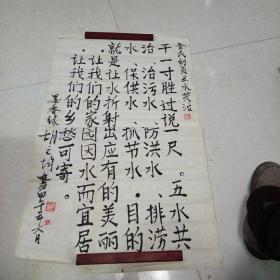 全民动员五水共治
干一寸胜过说一尺。五水共
治、治污水、防洪水、排涝
水、保供水、抓节水·目的
就是让水折射出应有的美丽
·让我们的家园因水而宜居
·让我们的乡愁可寄。